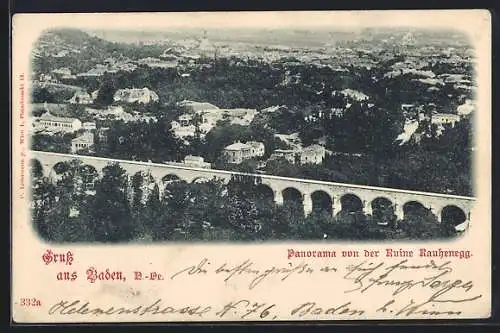 P. Ledermann jr. Wien I, Fleischmarkt 11.
Gruß
aus Baden, N.-Oe.
Panorama von der Ruine Rauhenegg.
Die besten Grüße
332a
Helenenstrasse No 76, Baden b/ Wien